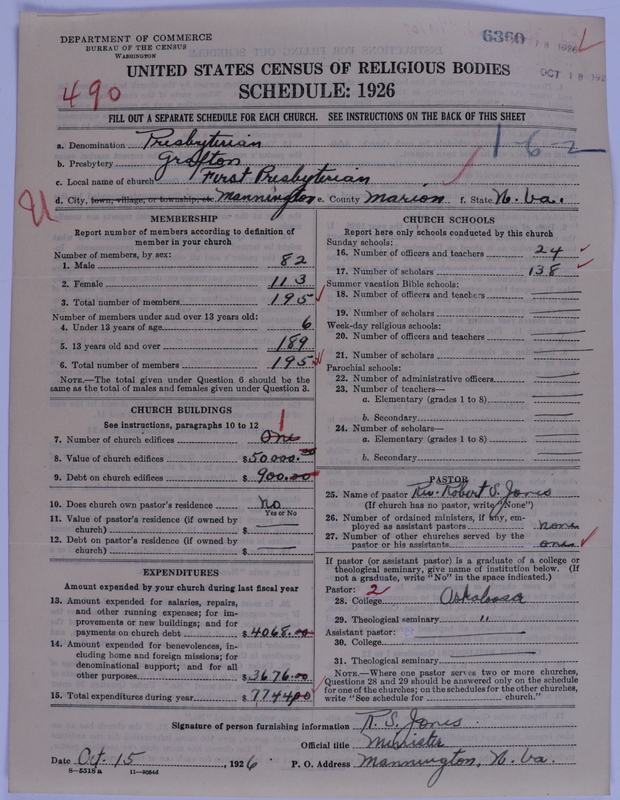 DEPARTMENT OF COMMERCE
BUREAU OF THE CENSUS
WASHINGTON
6360
OCT 18 192
490
UNITED STATES CENSUS OF RELIGIOUS BODIES
SCHEDULE: 1926
FILL OUT A SEPARATE SCHEDULE FOR EACH CHURCH. SEE INSTRUCTIONS ON THE BACK OF THIS SHEET
1-6-2
a. Denomination Presbyterian
b. Presbytery Grafton
c. Local name of church First Presbyterian
d. City, town, village, or township, etc Mannington e. County Marion f. State W. Va.
MEMBERSHIP
Report number of members according to definition of
member in your church
Number of members, by sex:
1. Male 82
2. Female 113
3. Total number of members 195
Number of members under and over 13 years old:
4. Under 13 years of age 6
5. 13 years old and over 189
6. Total number of members 195
NOTE.—The total given under Question 6 should be the
same as the total of males and females given under Question 3.
CHURCH BUILDINGS
See instructions, paragraphs 10 to 12
1
7. Number of church edifices One
8. Value of church edifices $50000.00
9. Debt on church edifices $900.00
10. Does church own pastor's residence No
Yes or No
11. Value of pastor's residence (if owned by
church) $
12. Debt on pastor's residence (if owned by
church) $
EXPENDITURES
Amount expended by your church during last fiscal year
13. Amount expended for salaries, repairs,
and other running expenses; for im-
provements or new buildings; and for
payments on church debt $4068.00
14. Amount expended for benevolences, in-
cluding home and foreign missions; for
denominational support; and for all
other purposes $3676.00
15. Total expenditures during year $7744.00
CHURCH SCHOOLS
Report here only schools conducted by this church
Sunday schools:
16. Number of officers and teachers 24
17. Number of scholars 138
Summer vacation Bible schools:
18. Number of officers and teachers
19. Number of scholars
Week-day religious schools:
20. Number of officers and teachers
21. Number of scholars
Parochial schools:
22. Number of administrative officers
23. Number of teachers—
a. Elementary (grades 1 to 8)
b. Secondary
24. Number of scholars—
a. Elementary (grades 1 to 8)
b. Secondary
PASTOR
25. Name of pastor Rev. Robert S. Jones
(If church has no pastor, write "None")
26. Number of ordained ministers, if any, em-
ployed as assistant pastors none
27. Number of other churches served by the
pastor or his assistants one
If pastor (or assistant pastor) is a graduate of a college or
theological seminary, give name of institution below. (If
not a graduate, write "No" in the space indicated.)
Pastor: 2
28. College Oskaloosa
29. Theological seminary "
Assistant pastor:
30. College
31. Theological seminary
NOTE.—Where one pastor serves two or more churches,
Questions 28 and 29 should be answered only on the schedule
for one of the churches; on the schedules for the other churches,
write "See schedule for ____ church."
Signature of person furnishing information R. S. Jones
Official title Minister
Date Oct. 15, 1926 P. O. Address Mannington, W. Va.
8-5518a